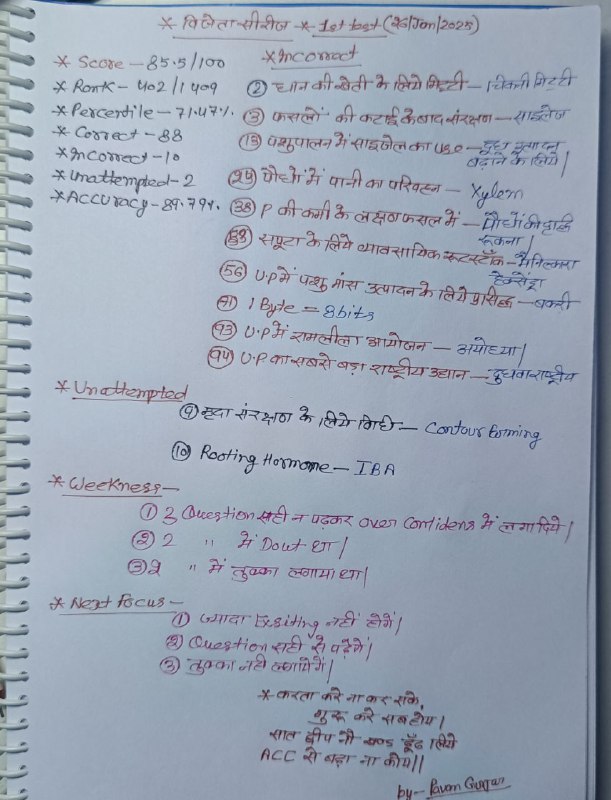 * विजेता सीरीज * 1st test (26/Jan/2025)
* Score - 85.5/100
* Rank - 402/1409
* Percentile - 71.47%
* Correct - 88
* Incorrect - 10
* Unattempted - 2
* ACCURACY - 89.79%
* Incorrect
② धान की खेती के लिये मिट्टी - चिकनी मिट्टी
③ फसलों की कटाई के बाद संरक्षण - साइलेज
⑬ पशुपालन में साइलेज का use - दूध उत्पादन
बढ़ाने के लिये|
㉔ पौधों में पानी का परिवहन - Xylem
㊳ P की कमी के लक्षण फसल में - पौधों की वृद्धि
रूकना|
सपूटा के लिये व्यावसायिक रूटस्टॉक - मैनिलकारा
हेक्सेंड्रा
(56) U.P में पशु मांस उत्पादन के लिये प्रसिद्ध - बकरी
(71) 1 Byte = 8 bits
(93) U.P में रामलीला आयोजन - अयोध्या|
(94) U.P का सबसे बड़ा राष्ट्रीय उद्यान - दुधवा राष्ट्रीय
* Unattempted
⑨ मृदा संरक्षण के लिये विधी - Contour Farming
⑩ Rooting Hormone - IBA
* Weekness -
① 3 Question सही न पढ़कर over Confidens में लगा दिये|
② 2 " में Dout था|
③ 2 " में तुक्का लगाया था|
* Next Focus -
① ज्यादा Exsiting नहीं होगें|
② Question सही से पढ़ेगें|
③ तुक्का नही लगायेगें|
* करता करे ना कर सके,
गुरू करे सब होय|
सात द्वीप नौ खण्ड ढूँढ लिये
ACC से बड़ा ना कोय||
by - Pavan Gurjar